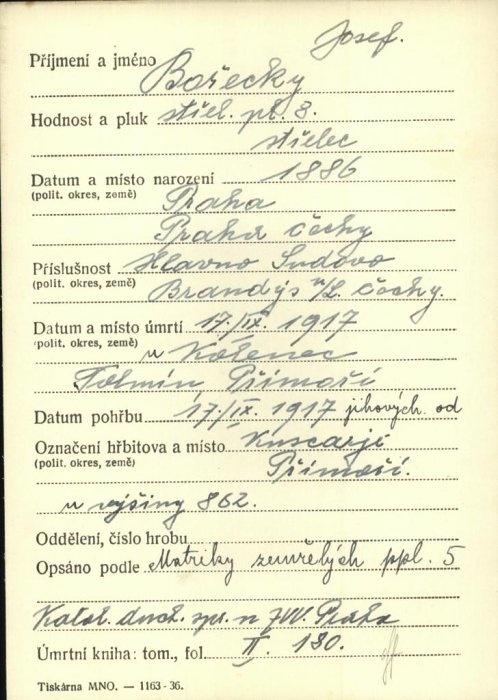 Josef.
Příjmení a jméno Bořecky
Hodnost a pluk střel. pl. 8.
střelec
Datum a místo narození 1886
(polit. okres, země) Praha
Praha čechy
Příslušnost Hlavno Sudovo
(polit. okres, země) Brandýs n/L. čechy.
Datum a místo úmrtí 17./IX. 1917
(polit. okres, země) u Kořenec
Tolmín, Přímoří
Datum pohřbu 17./IX. 1917 jihových. od
Označení hřbitova a místo Kuscarji
(polit. okres, země) Přímoří.
u vyšiny 862.
Oddělení, číslo hrobu
Opsáno podle Matriky zemřelých ppl. 5
Katol. duch. spr. n ZVV. Praha
Úmrtní kniha: tom., fol. II. 130.
Tiskárna MNO. — 1163-36.